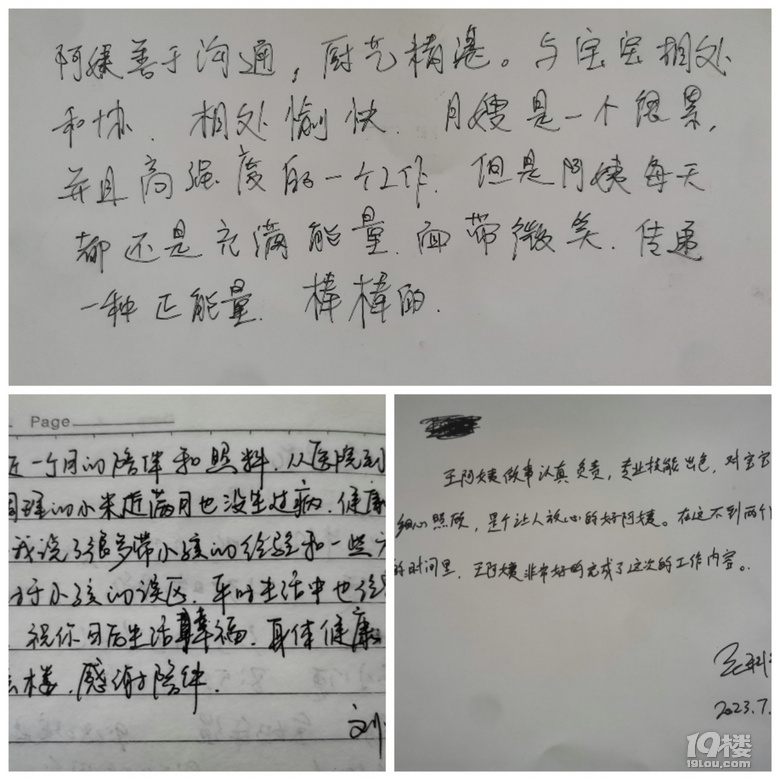 阿姨善于沟通，厨艺精湛。与宝宝相处
和协．相处愉快．月嫂是一个很累，
并且高强度的一个工作．但是阿姨每天
都还是充满能量．面带微笑．传递
一种正能量．棒棒的．
Page
近一个月的陪伴和照料．从医院到
的小米近满月也没生过病．健康
我说了很多带小孩的经验和一些
于小孩的误区．平时生活中也
祝你日后生活幸福．身体健康
么棒．感谢陪伴．
刘
王阿姨做事认真负责，专业技能出色，对宝宝
细心照顾，是个让人放心的好阿姨。在这不到两个
的时间里，王阿姨非常好的完成了这次的工作内容。
2023.7.
19楼
19lou.com